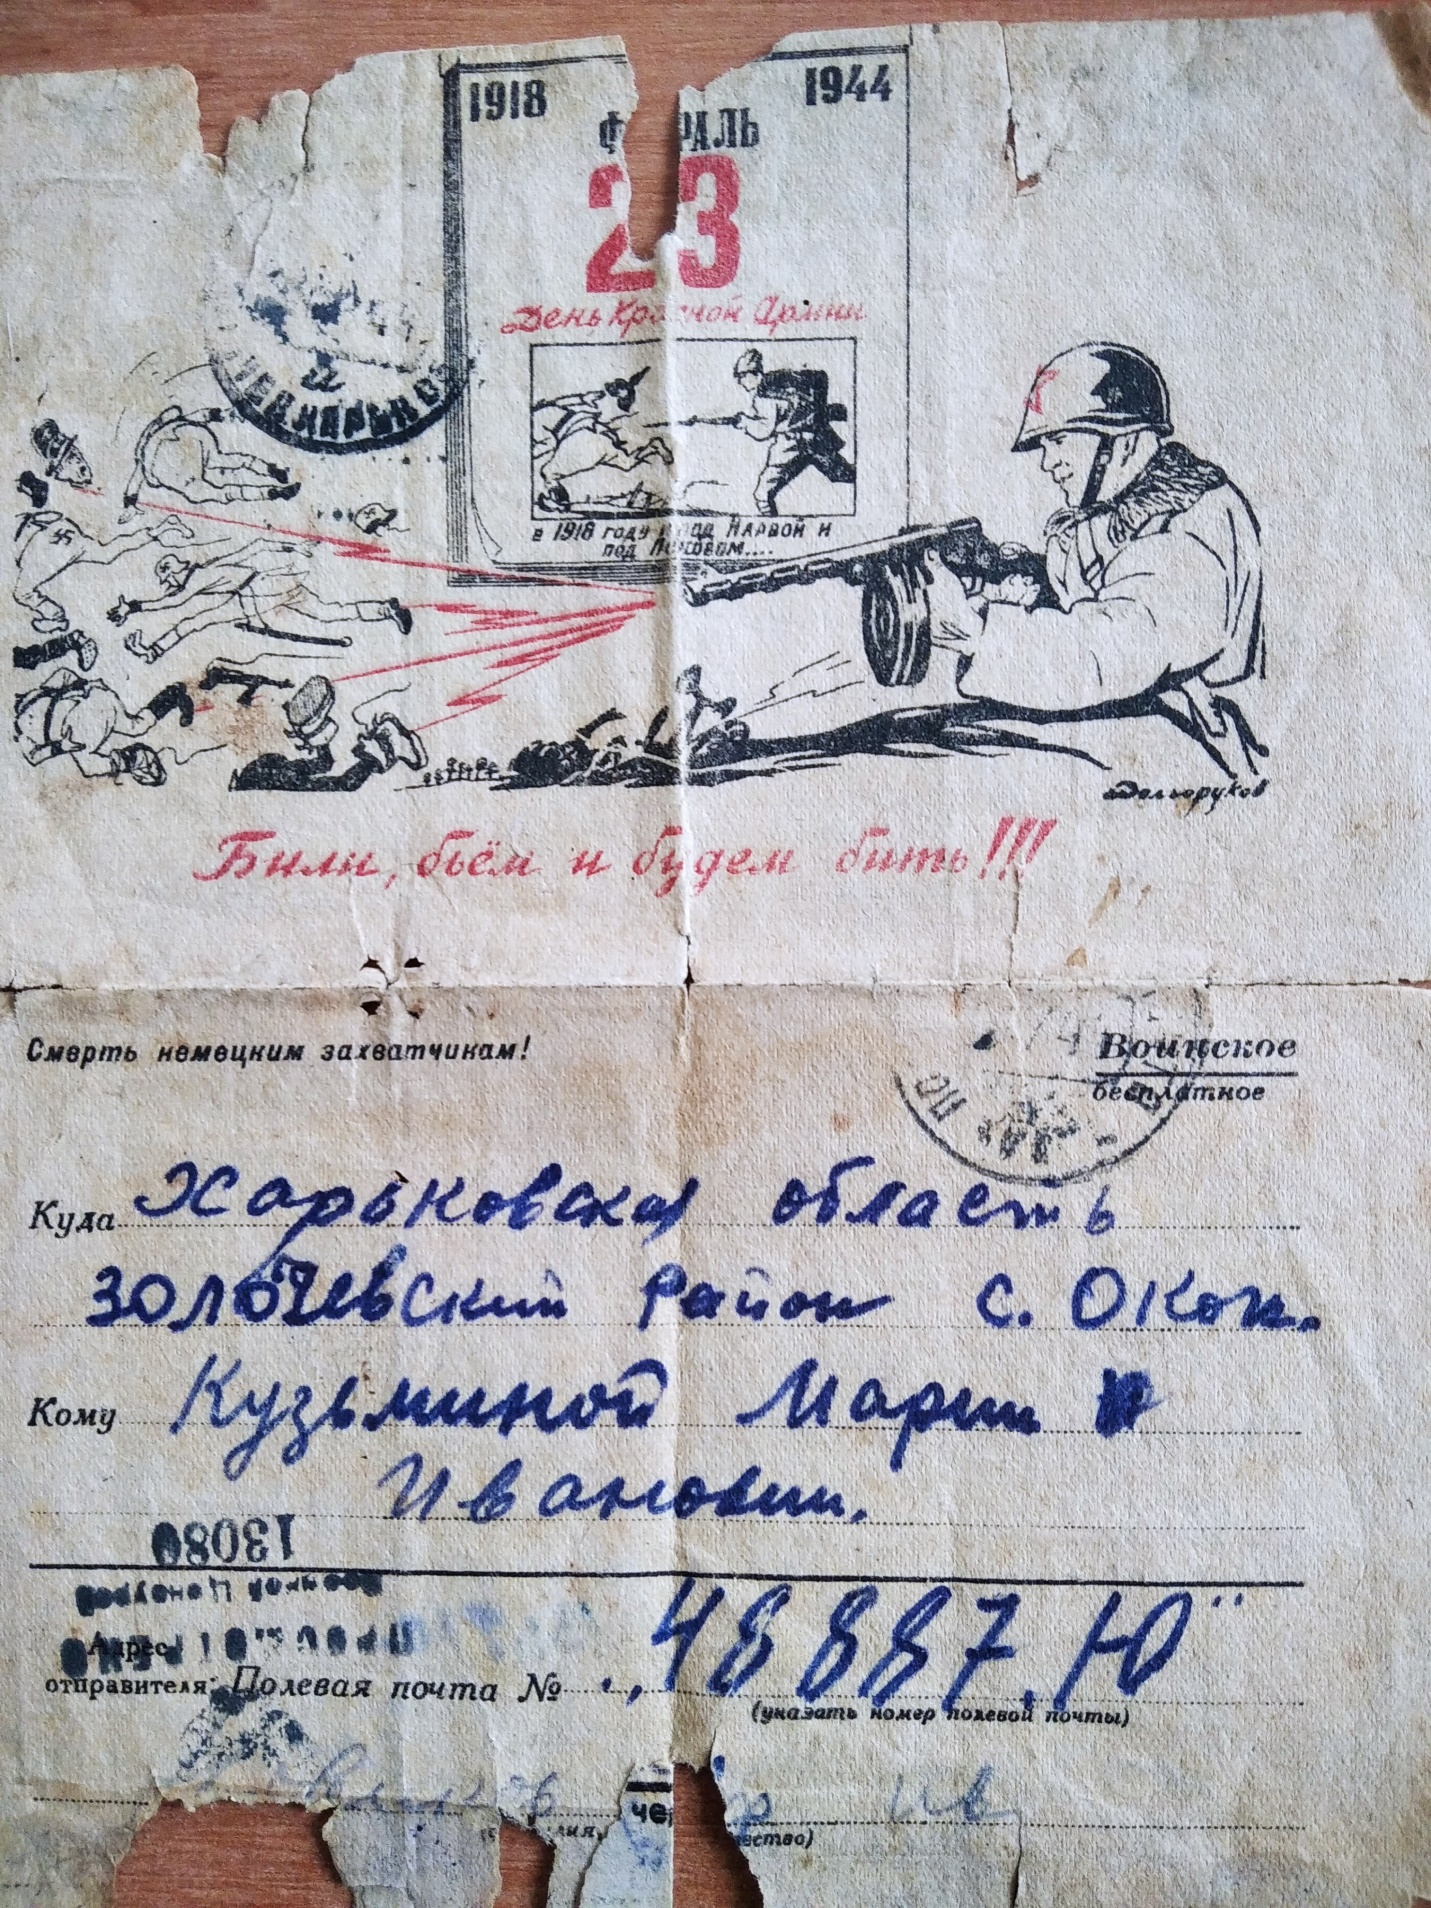 1918 1944
23
День Красной Армии
в 1918 году под Нарвой и
под Псковом....
Долгоруков
Били, бьём и будем бить!!!
Смерть немецким захватчикам!
Воинское
бесплатное
Куда Харьковская область
Золочевский район с. Окоп.
Кому Кузьминой Марии
Ивановны.
13080
Военной Цензурой
Адрес
отправителя: Полевая почта № „48887.Ю"
(указать номер полевой почты)